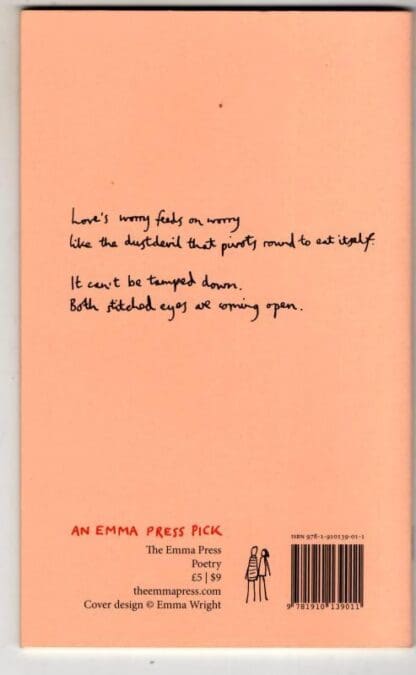 Love's worry feeds on worry
like the dustdevil that pivots round to eat itself.
It can't be tamped down.
Both stitched eyes are coming open.
AN EMMA PRESS PICK
The Emma Press
Poetry
£5 | $9
theemmapress.com
Cover design © Emma Wright
ISBN 978-1-910139-01-1
9 781910 139011